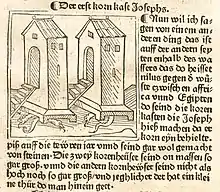 ¶ Der erst korn kast Josephs.
¶ Nun wil ich sa
gen von einem an
deren ding das ist
auff der andern sey
ten enhalb des was
sers das do heisset
nilus gegen d wü
ste czwischen aff
rica vnd Egipten
do seind die koren
kasten die Joseph
hieß machen da er
korn eyn behielte
piß auff die teüren iar vnnd seind gar wol gemacht
von steinen. Die zwey kornheüser seind on massen so
gar groß vnnd die andern kornheüser seind nicht als
hoch noch so gar groß vnd yegklicher det hat ein klei
ne thür do man hinein gett